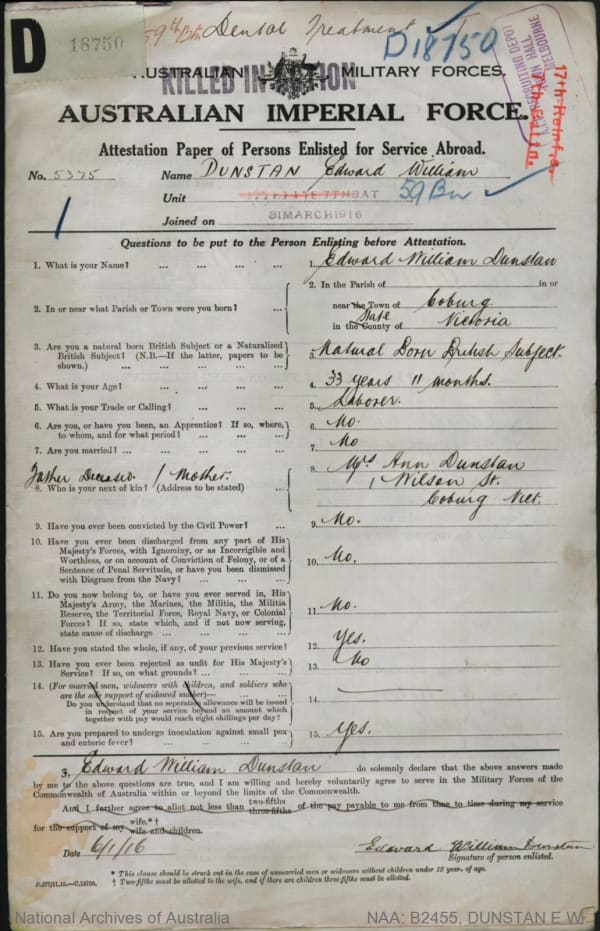 D 18750 59th Btn Dental Treatment D18750
A.I.F. RECRUITING DEPOT
TOWN HALL
MELBOURNE
17th Reinfs.
7th Battn.
AUSTRALIAN MILITARY FORCES.
KILLED IN ACTION
AUSTRALIAN IMPERIAL FORCE.
Attestation Paper of Persons Enlisted for Service Abroad.
No. 5375 Name DUNSTAN Edward William
Unit 17 REINFTS 7TH BAT 59 Bn
Joined on 31 MARCH 1916
1
Questions to be put to the Person Enlisting before Attestation.
1. What is your Name? ... ... ... ... 1. Edward William Dunstan
2. In or near what Parish or Town were you born? ... 2. In the Parish of in or
near the Town of Coburg
in the State County of Victoria
3. Are you a natural born British Subject or a Naturalized
British Subject? (N.B.—If the latter, papers to be
shown.) ... ... ... ... 3. Natural Born British Subject.
4. What is your Age? ... ... ... 4. 33 years 11 months.
5. What is your Trade or Calling? ... ... ... 5. Laborer.
6. Are you, or have you been, an Apprentice? If so, where,
to whom, and for what period? ... ... ... 6. No.
7. Are you married? ... ... ... ... 7. No
Father Deceased. / Mother.
8. Who is your next of kin? (Address to be stated) ... 8. Mrs Ann Dunstan
1 Wilson St.
Coburg Vict.
9. Have you ever been convicted by the Civil Power? ... 9. No.
10. Have you ever been discharged from any part of His
Majesty's Forces, with Ignominy, or as Incorrigible and
Worthless, or on account of Conviction of Felony, or of a
Sentence of Penal Servitude, or have you been dismissed
with Disgrace from the Navy? ... ... ... 10. No.
11. Do you now belong to, or have you ever served in, His
Majesty's Army, the Marines, the Militia, the Militia
Reserve, the Territorial Force, Royal Navy, or Colonial
Forces? If so, state which, and if not now serving,
state cause of discharge ... ... ... ... 11. No.
12. Have you stated the whole, if any, of your previous service? 12. Yes.
13. Have you ever been rejected as unfit for His Majesty's
Service? If so, on what grounds? ... ... ... 13. No
14. (For married men, widowers with children, and soldiers who
are the sole support of widowed mother)— ... ...
Do you understand that no separation allowance will be issued
in respect of your service beyond an amount which
together with pay would reach eight shillings per day? 14. —
15. Are you prepared to undergo inoculation against small pox
and enteric fever? ... ... ... ... 15. Yes.
I, Edward William Dunstan do solemnly declare that the above answers made
by me to the above questions are true, and I am willing and hereby voluntarily agree to serve in the Military Forces of the
Commonwealth of Australia within or beyond the limits of the Commonwealth.
And I further agree to allot not less than two-fifths three-fifths of the pay payable to me from time to time during my service
for the support of my wife.*† wife and children.
Date 6/1/16 Edward William Dunstan
Signature of person enlisted.
* This clause should be struck out in the case of unmarried men or widowers without children under 18 year. of age.
† Two-fifths must be allotted to the wife, and if there are children three-fifths must be allotted.
National Archives of Australia NAA: B2455, DUNSTAN E W